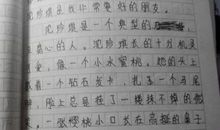 沈珍煐是我非常要好的朋友。
沈珍煐是一个典型的
心的人。沈珍煐长的十分机灵
像一个小水蜜桃。她的头上
戴着一个钻石发卡,扎了一个马尾
脸上总是挂了一楼抹不掉的微
一张樱桃小口长在高挺的鼻子